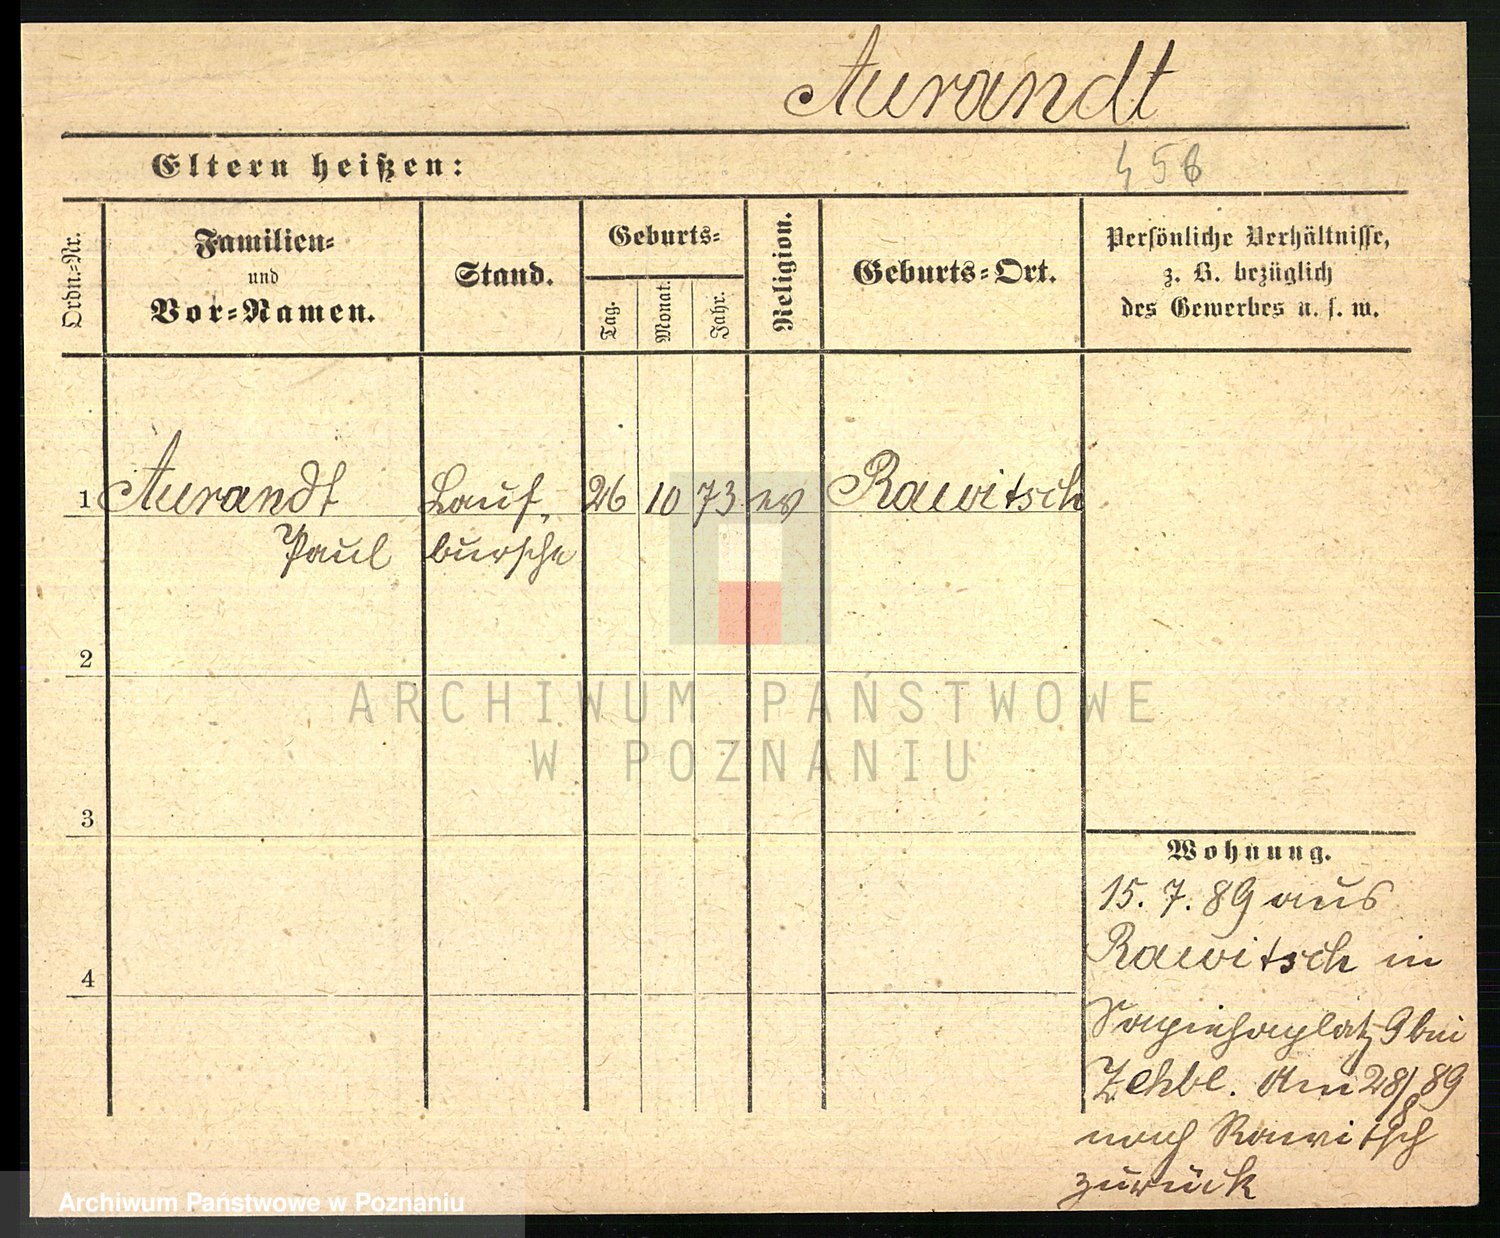 Aurandt
Eltern heißen:
456
Ordn.-Nr.
Familien-
und
Vor-Namen.
Stand.
Geburts-
Tag.
Monat.
Jahr.
Religion.
Geburts-Ort.
Persönliche Verhältnisse,
z. B. bezüglich
des Gewerbes u. s. w.
1 Aurandt Lauf- 26 10 73 ev Rawitsch
Paul bursche
2
3
4
Wohnung.
15. 7. 89 aus
Rawitsch in
Sapiehaplatz 9 bei
Am 28/8 89
nach Rawitsch
zurück
ARCHIWUM PAŃSTWOWE
W POZNANIU
Archiwum Państwowe w Poznaniu